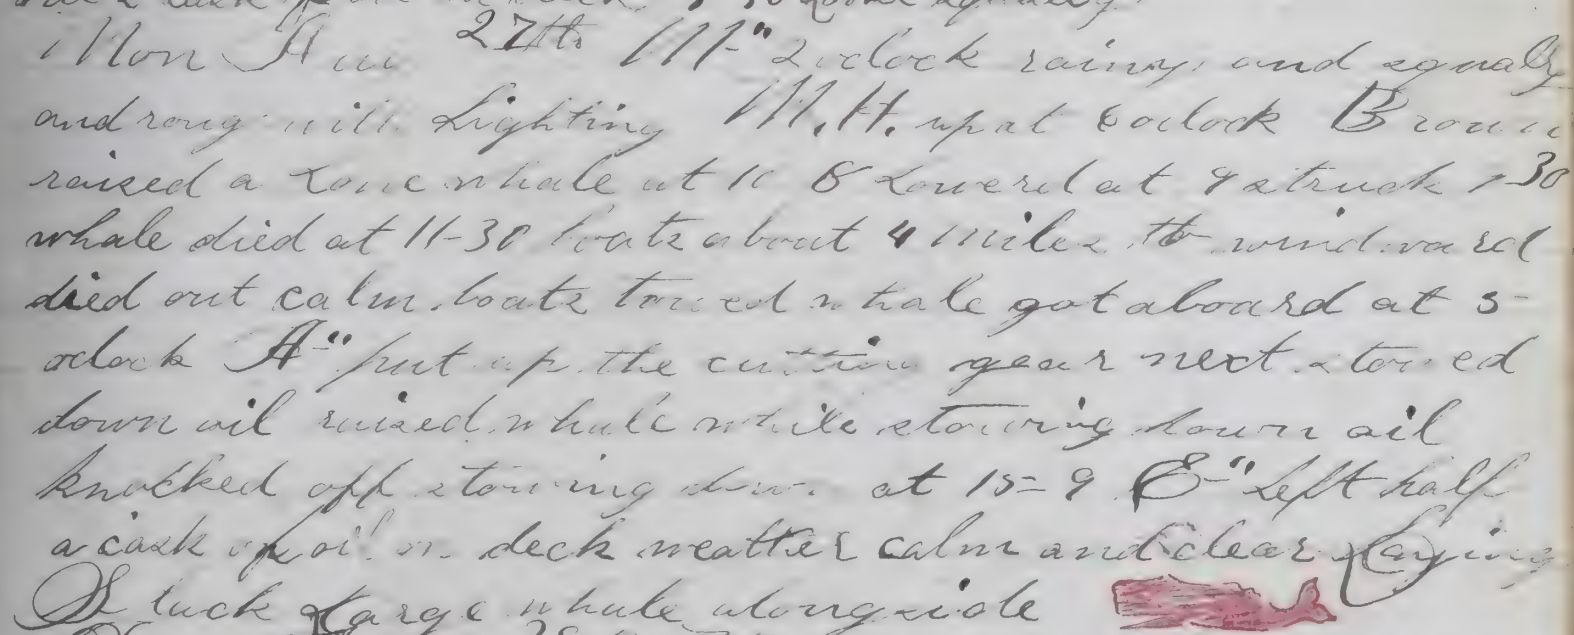 Mon Au 27th M-" 2 oclock rainy and squaly
and roug Lighting M.H. up at 6 oclock Brown
raised a Lone whale at Lowered at 9 struck 30
whale died at 11-30 boats about 4 miles to windward
died out calm. boats towed whale got aboard at 5-
oclock A-" put up the cutting gear next stowed
down oil raised whale while stowing down oil
knocked off stowing down at 15=9 E-" Left half
a cask of oil on deck weather calm and clear Laying
Stuck Large whale alongside